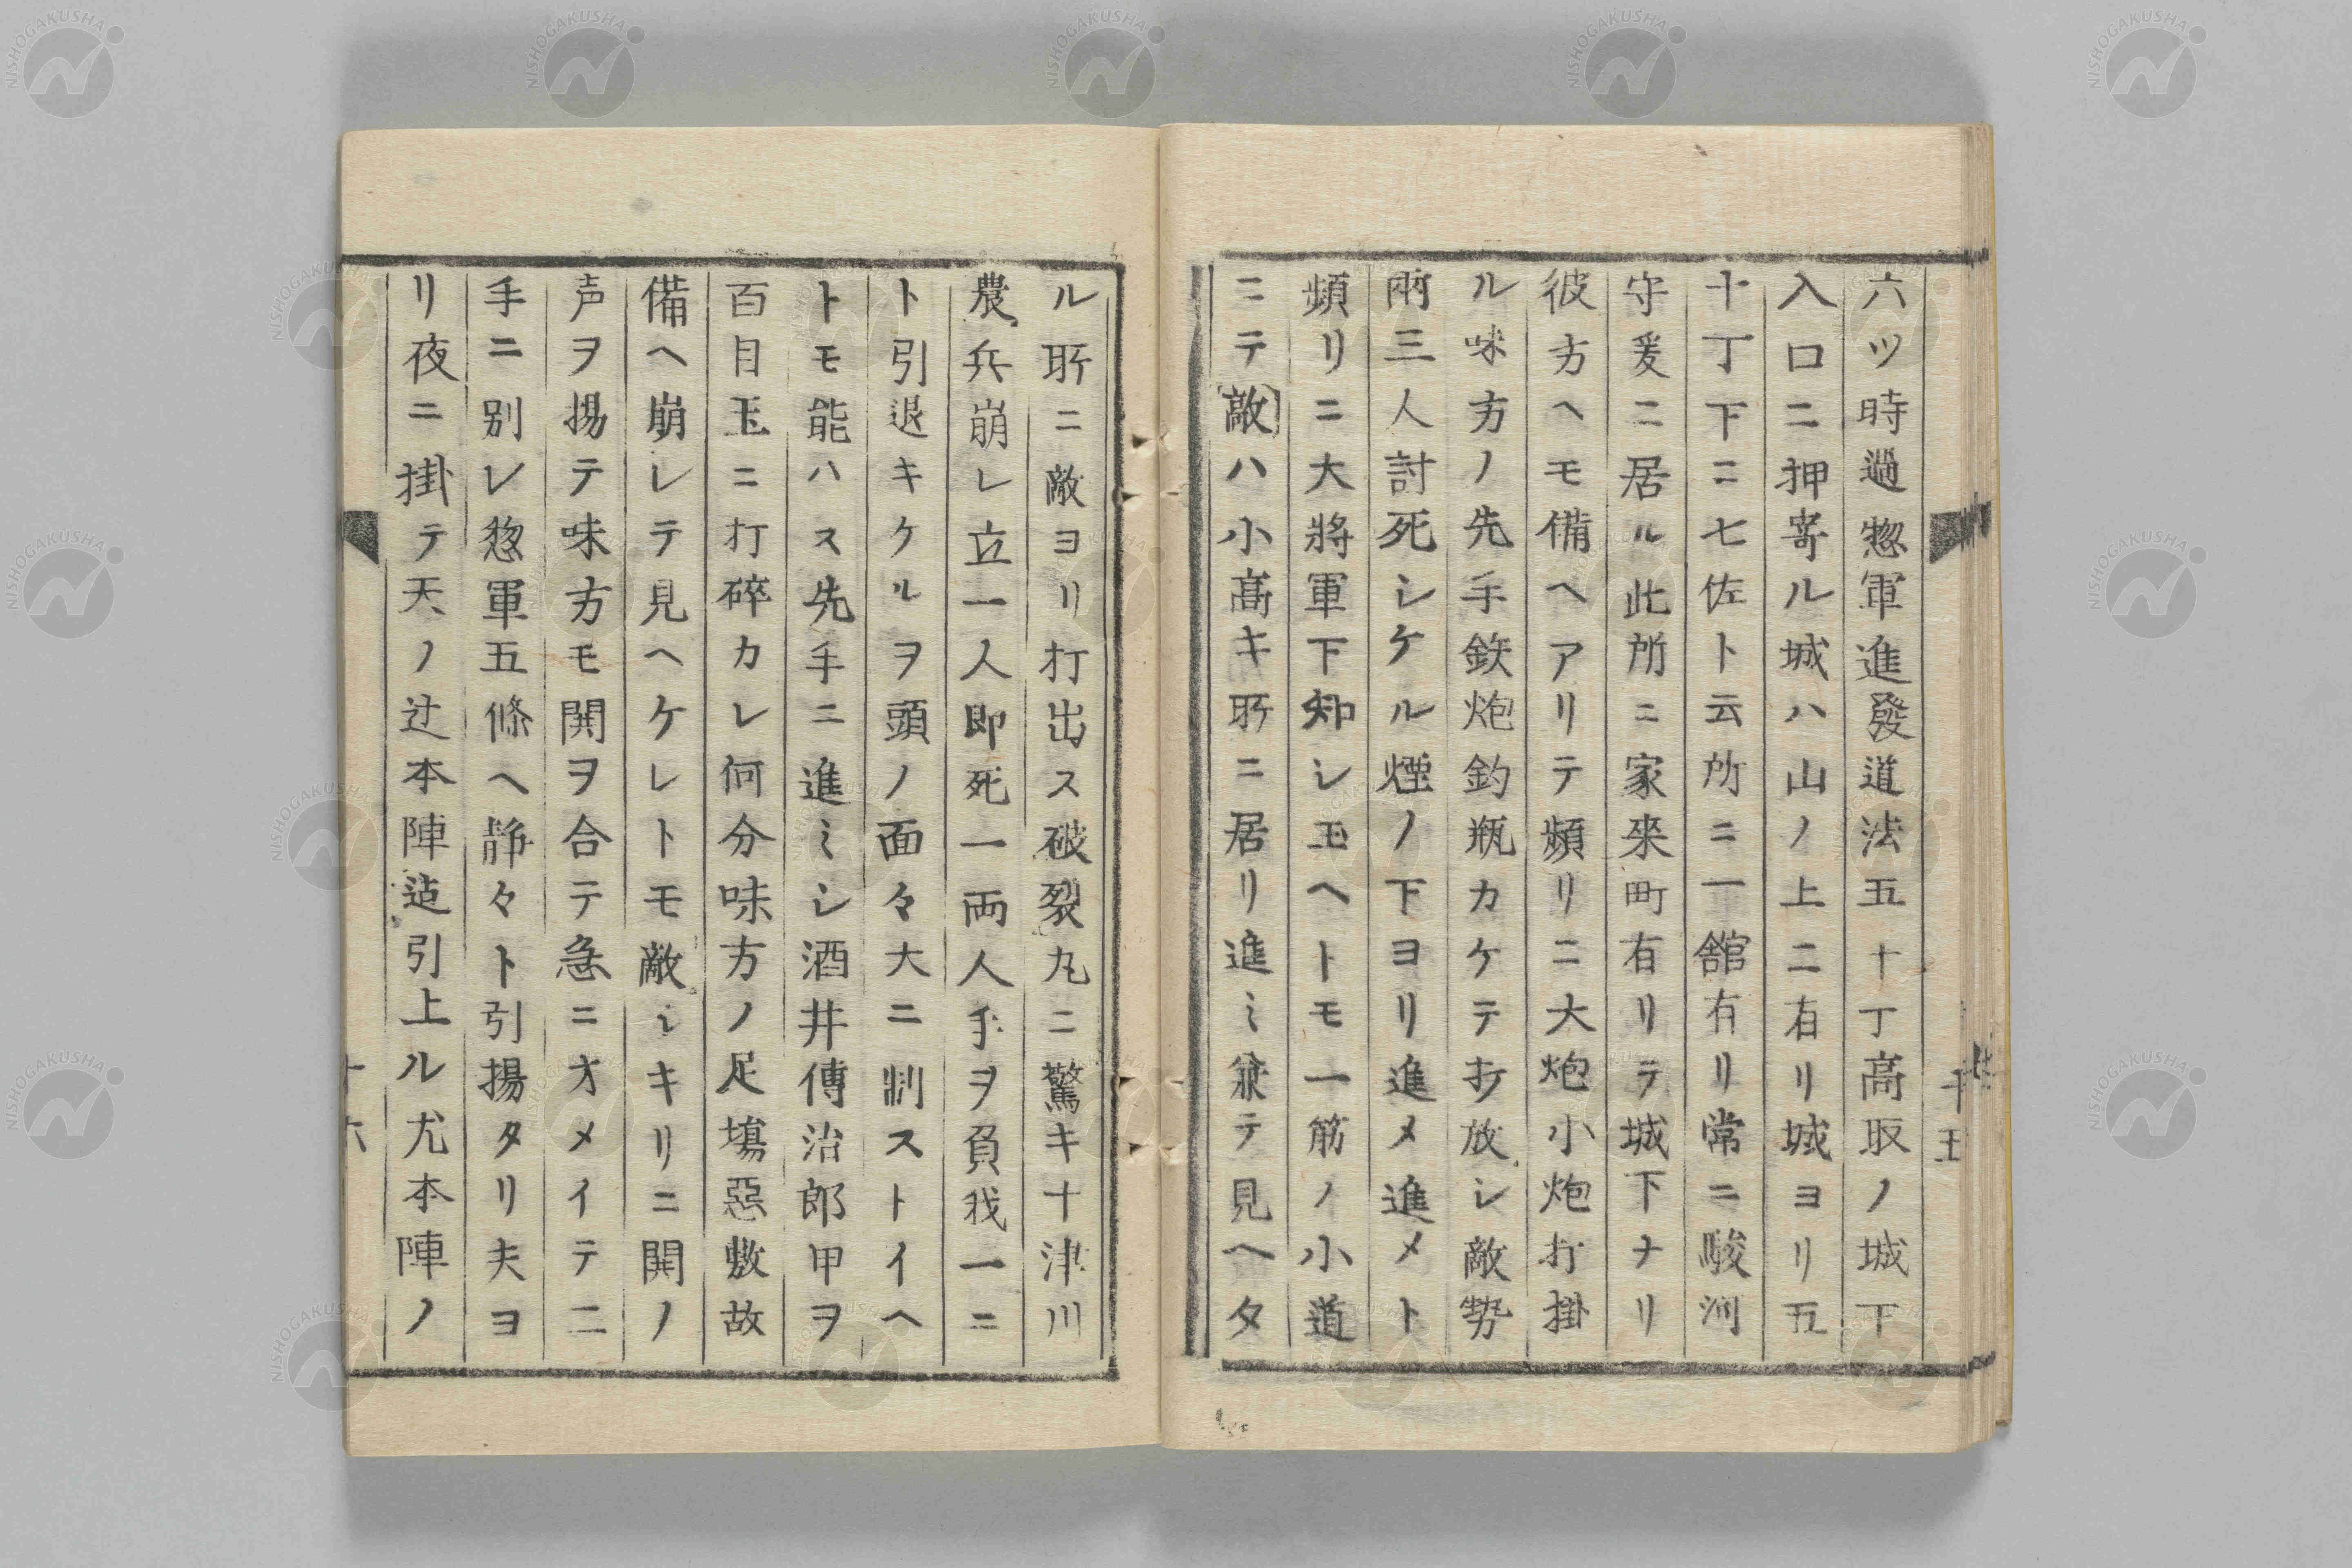 六ツ時過惣軍進發道法五十丁高取ノ城下
入口ニ押寄ル城ハ山ノ上ニ有リ城ヨリ五
十丁下ニ七佐ト云所ニ一舘有リ常ニ駿河
守爰ニ居ル此所ニ家來町有リテ城下ナリ
彼方ヘモ備ヘアリテ頻リニ大炮小炮打掛
ル味方ノ先手鉄炮釣瓶カケテ打放シ敵勢
兩三人討死シケル煙ノ下ヨリ進メ進メト
頻リニ大將軍下知シ玉ヘトモ一筋ノ小道
ニテ敵ハ小高キ所ニ居リ進ミ兼テ見ヘタ
ル所ニ敵ヨリ打出ス破裂丸ニ驚キ十津川
農兵崩レ立一人即死一両人手ヲ負我一ニ
ト引退キケルヲ頭ノ面々大ニ制ストイヘ
トモ能ハス先手ニ進ミシ酒井傳治郎甲ヲ
百目玉ニ打碎カレ何分味方ノ足塲惡敷故
備ヘ崩レテ見ヘケレトモ敵シキリニ鬨ノ
声ヲ揚テ味方モ鬨ヲ合テ急ニオメイテ二
手ニ別レ惣軍五條ヘ静々ト引揚タリ夫ヨ
リ夜ニ掛テ天ノ辻本陣迠引上ル尤本陣ノ
十六
NISHOGAKUSHA